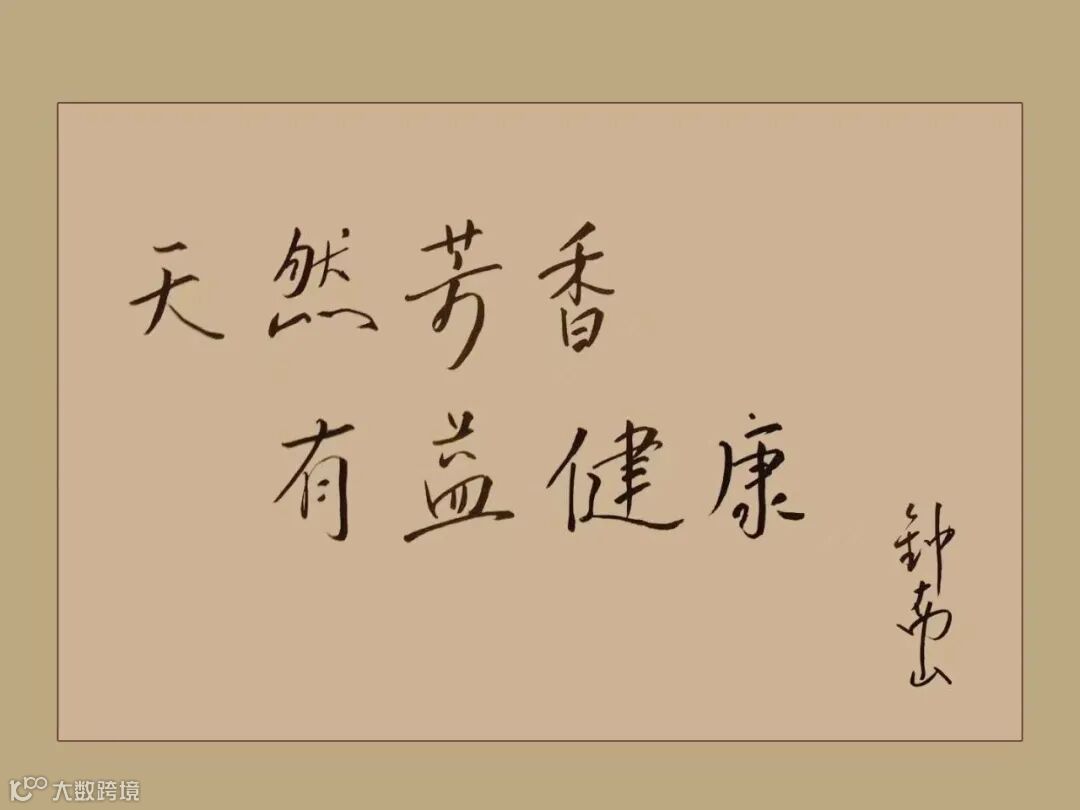 天然芳香
有益健康
钟南山
大数跨境